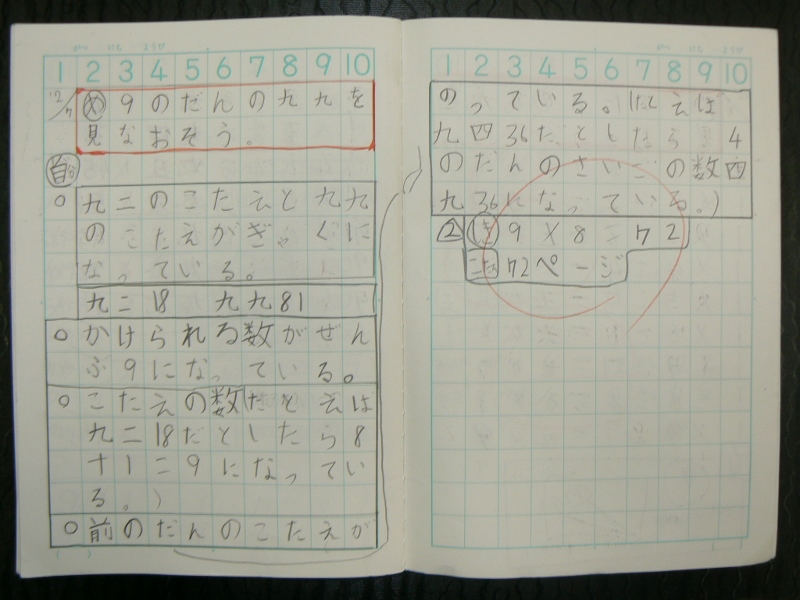 1 2 3 4 5 6 7 8 9 10
12/7 め 9のだんの九九を
見なおそう。
自分
○ 九二のこたえと九九
のこたえがぎゃくに
なっている。
九二 18 九九 81
○ かけられる数がぜん
ぶ9になっている。
○ こたえの数(たとえば
九二18だとしたら8
+1=9になってい
る。)
○ 前のだんのこたえが
1 2 3 4 5 6 7 8 9 10
のっている。(たとえば
九四36だとしたら 4
のだんのさいごの数四
九36になっている。)
② しき 9×8=72
こたえ 72ページ